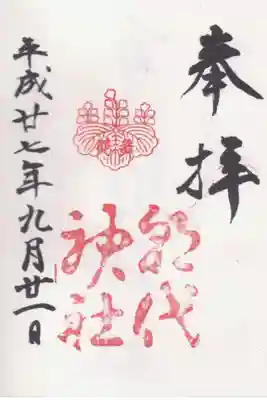 奉拝
代
神社
平成廿七年九月廿一日